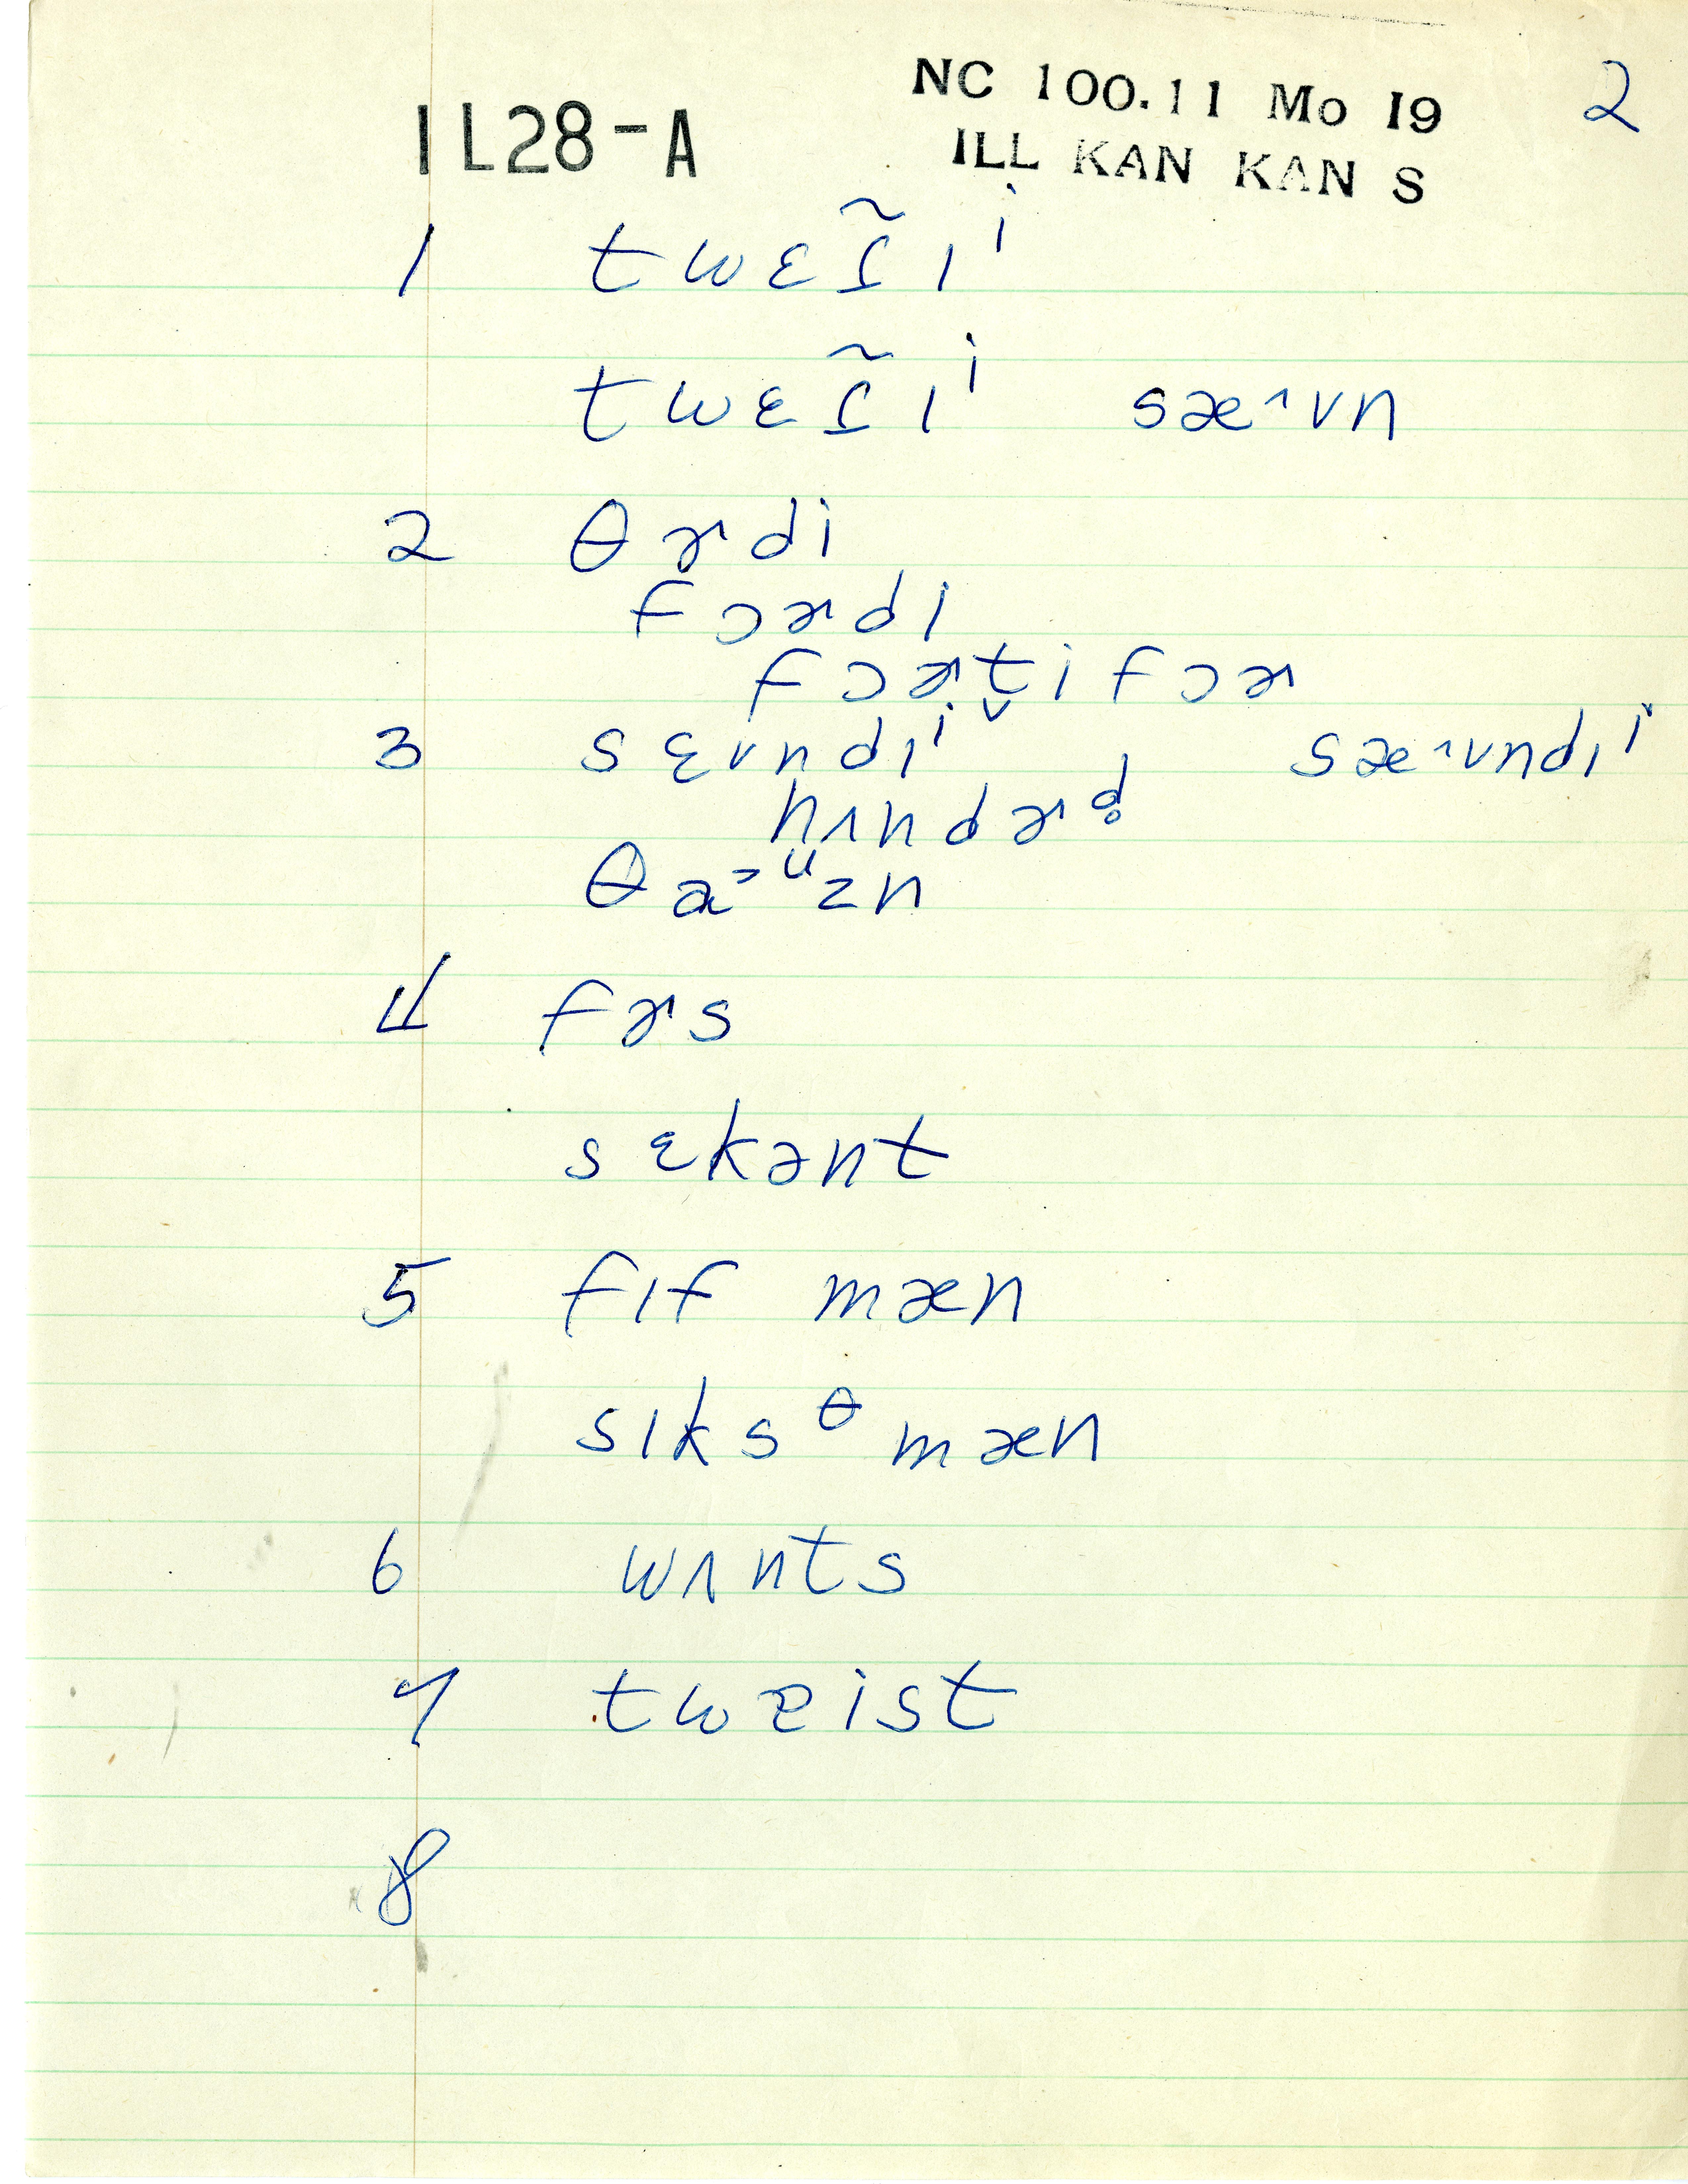 NC 100.11 Mo I9 2
IL28-A ILL KAN KAN S
1 twɛɾ̃ɪⁱ
twɛɾ̃ɪⁱ sæ˄vn
2 θɚdi
fɔɚdi
fɔɚt̬ifɔɚ
3 sɛvndɪⁱ sæ˄vndɪⁱ
hʌndɚd̥
θa˃ᵘzn
4 fɚs
sɛkənt
5 fɪf mæn
sɪksᶿmæn
6 wʌnts
7 twɐist
8